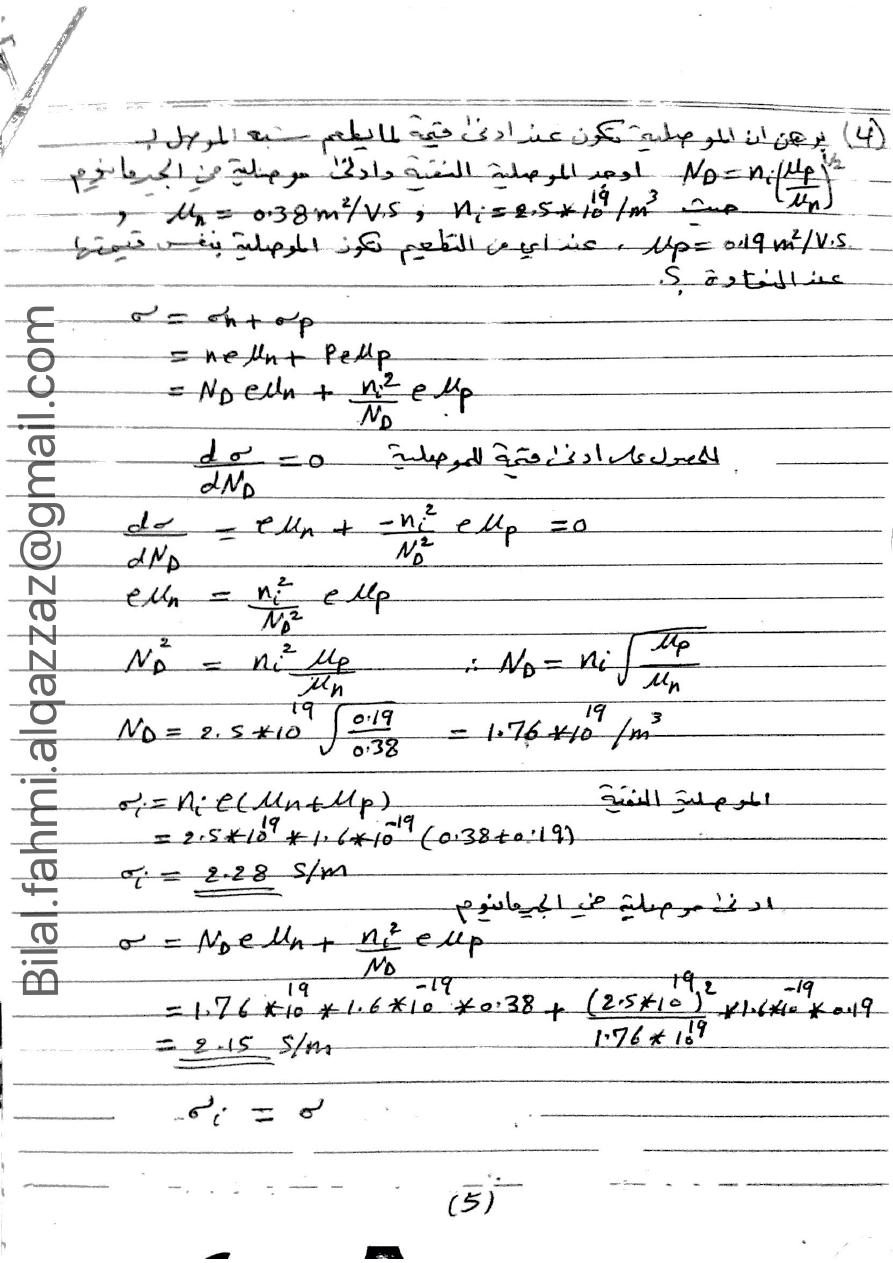 (4) برهن ان الموصلية تكون عند ادنى قيمة لما يطعم شبه الموصل بـ
N_D = n_i (μp/μn)^1/2 اوجد الموصلية النقية وادنى موصلية في الجيرمانيوم
حيث n_i = 2.5*10^19 /m^3 , μn = 0.38 m^2/V.S و
μp = 0.19 m^2/V.S. ، عند اي من التطعيم تكون الموصلية بنفس قيمتها
عند النقاوة ؟.
σ = σn + σp
= neμn + Peμp
= N_D eμn + n_i^2/N_D eμp
dσ/dN_D = 0 للحصول على ادنى قيمة للموصلية
dσ/dN_D = eμn + -n_i^2/N_D^2 eμp = 0
eμn = n_i^2/N_D^2 eμp
N_D^2 = n_i^2 μp/μn ∴ N_D = n_i √(μp/μn)
N_D = 2.5*10^19 √(0.19/0.38) = 1.76*10^19 /m^3
σi = n_i e(μn+μp) الموصلية النقية
= 2.5*10^19 * 1.6*10^-19 (0.38+0.19)
σi = 2.28 S/m
ادنى موصلية في الجيرمانيوم
σ = N_D eμn + n_i^2/N_D eμp
= 1.76*10^19 * 1.6*10^-19 * 0.38 + (2.5*10^19)^2/1.76*10^19 * 1.6*10^-19 * 0.19
= 2.15 S/m
σi = σ
(5)
Bilal.fahmi.alqazzaz@gmail.com